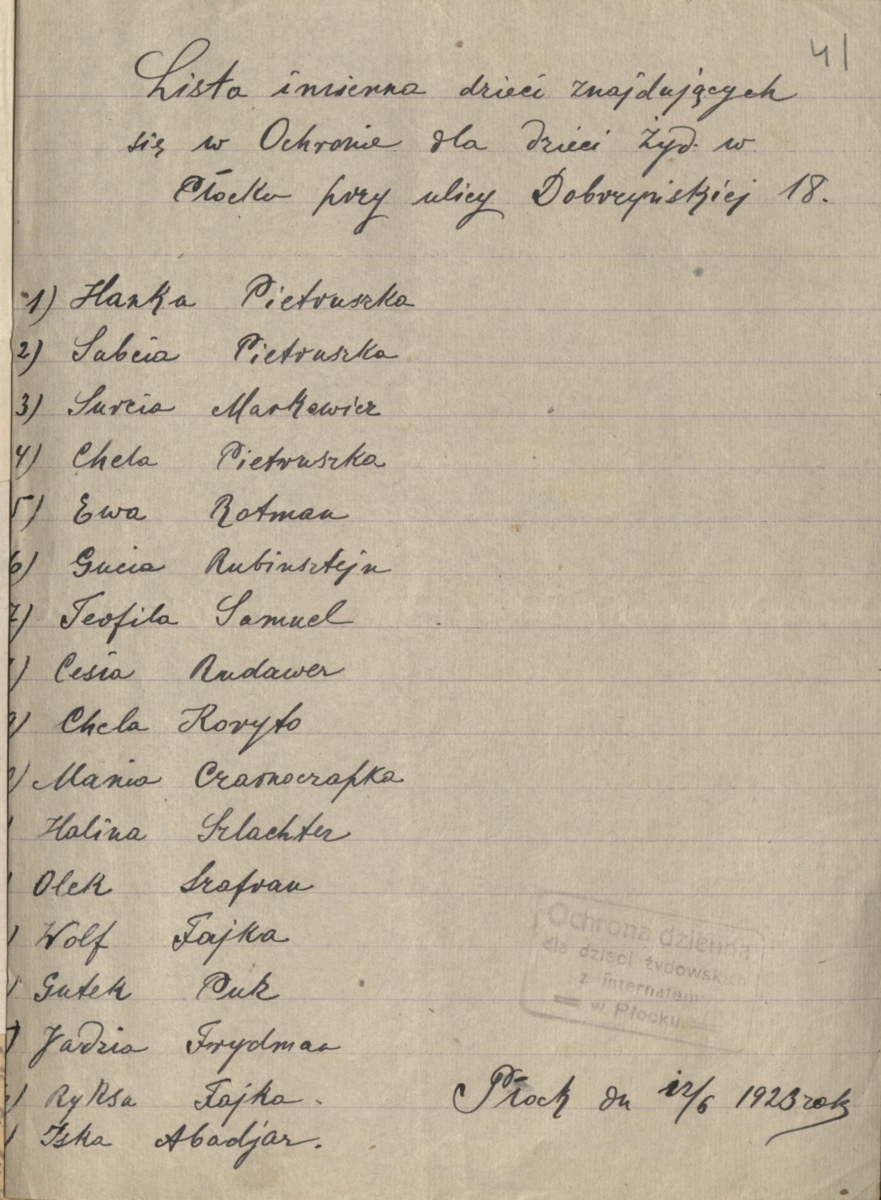 41
Lista imienna dzieci znajdujących
się w Ochronie dla dzieci żyd. w
Płocku przy ulicy Dobrzyńskiej 18.
1) Hanka Pietruszka
2) Sabcia Pietruszka
3) Surcia Markowicz
4) Chela Pietruszka
5) Ewa Rotman
6) Gucia Rubinsztejn
7) Teofila Samuel
) Cesia Rudawer
9) Chela Koryto
) Mania Czarnoczapka
Halina Szlachter
) Olek Szafran
) Wolf Fajka
) Gutek Puk
) Jadzia Frydman
) Ryksa Fajka.
) Iska Abadjar.
Ochrona dzienna
dla dzieci żydowskich
z internatem
w Płocku
Płock dn 12/6 1923 rok